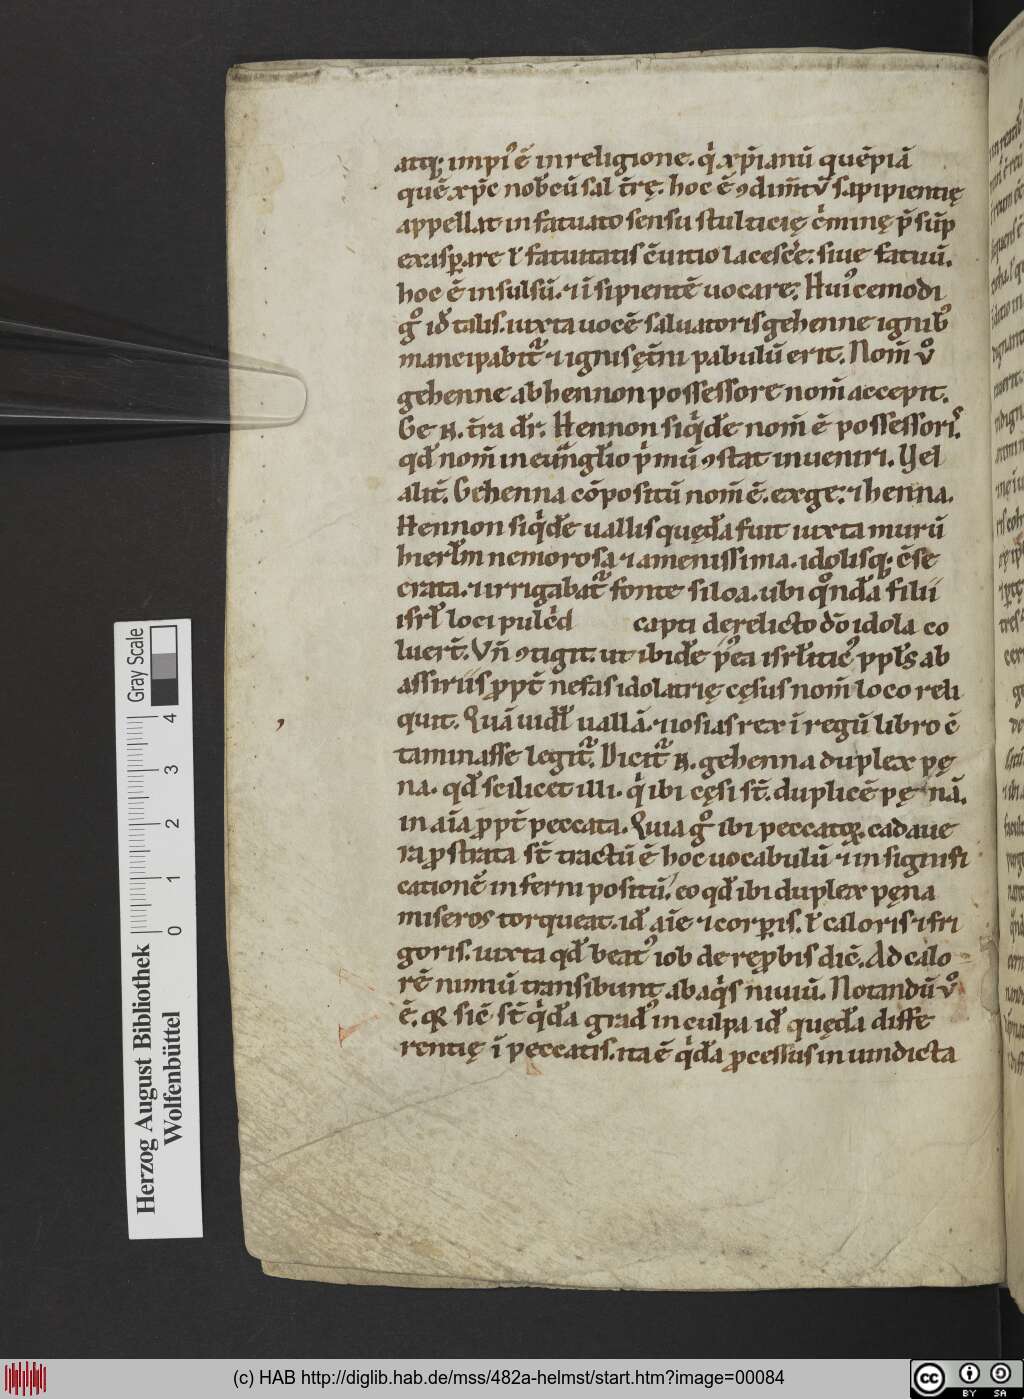 atq; impiꝰ ē in religione. qͥ xp̄ianū quē piā
quē xp̄c nobcū sal t̄rę. hoc ē ꝯdim̄tv̄ sapipientię
appellat infatuato sensu stulticię c̄mine p̄sūp
exasꝑare ł fatuitatis c̄uitio lacesc̄e; siue fatuū.
hoc ē insulsū. ⁊ īsipientē uocare; Huiꝰcemodi
gͦ iđ talis. iuxta uocē saluatoris gehenne ignibꝰ
mancipabit᷑ ⁊ ignis ęt̄ni pabulū erit. Nom̄ vͦ
gehenne ab hennon possessore nom̄ accepit.
Ge .n. t̄ra dr̄. Hennon siqͥde nom̄ ē possessoris.
qđ nom̄ in euᷓnglio pͥmū ꝯstat inueniri. Vel
alit̄. Gehenna cōpositū nom̄ ē. ex ge; ⁊ henna.
Hennon siqͥde uallis quędā fuit iuxta murū
hierłm nemorosa ⁊ amenissima. idolisq; c̄se
crata. ⁊ irrigabat᷑ fonte siloa. ubi qͦndā filii
isrł loci pulcͥd capti derelicto dō idola co
luer̄t. Vn̄ ꝯtigit. ut ibide p̄ea isrłiticꝰ ppłs ab
assiriis ꝓpt̄ nefas idolatrię cęsus nom̄ loco reli
quit. Quā uidł uallā. ⁊ iosias rex ī regū libro c̄
taminasse legit᷑. Dicit᷑ .n. gehenna duplex pę
na. qđ scilicet illi. qͥ ibi cęsi st̄. duplicē pęnā.
in aīa ꝓpt̄ peccata. Quia gͦ ibi peccatoꝝ cadaue
ra ꝓstrata st̄ tractū ē hoc uocabulū ⁊ in signifi
cationē inferni positū. eo qđ ibi duplex pęna
miseros torqueat. iđ aīe ⁊ corꝑis. ł caloris ⁊ fri
goris. iuxta qđ beatꝰ iob de reꝓbis dic̄. Ad calo
rē nimiū transibunt ab aqͥs niuiū. Notandū vͦ
ē. qꝛ sic̄ st̄ qͥdā gradꝰ in culpa iđ quędā diffe
rentię ī peccatis. ita ē qͥdā ꝓcessus in uindicta
Herzog August Bibliothek
Wolfenbüttel
Gray Scale
0 1 2 3 4
(c) HAB http://diglib.hab.de/mss/482a-helmst/start.htm?image=00084
cc BY SA